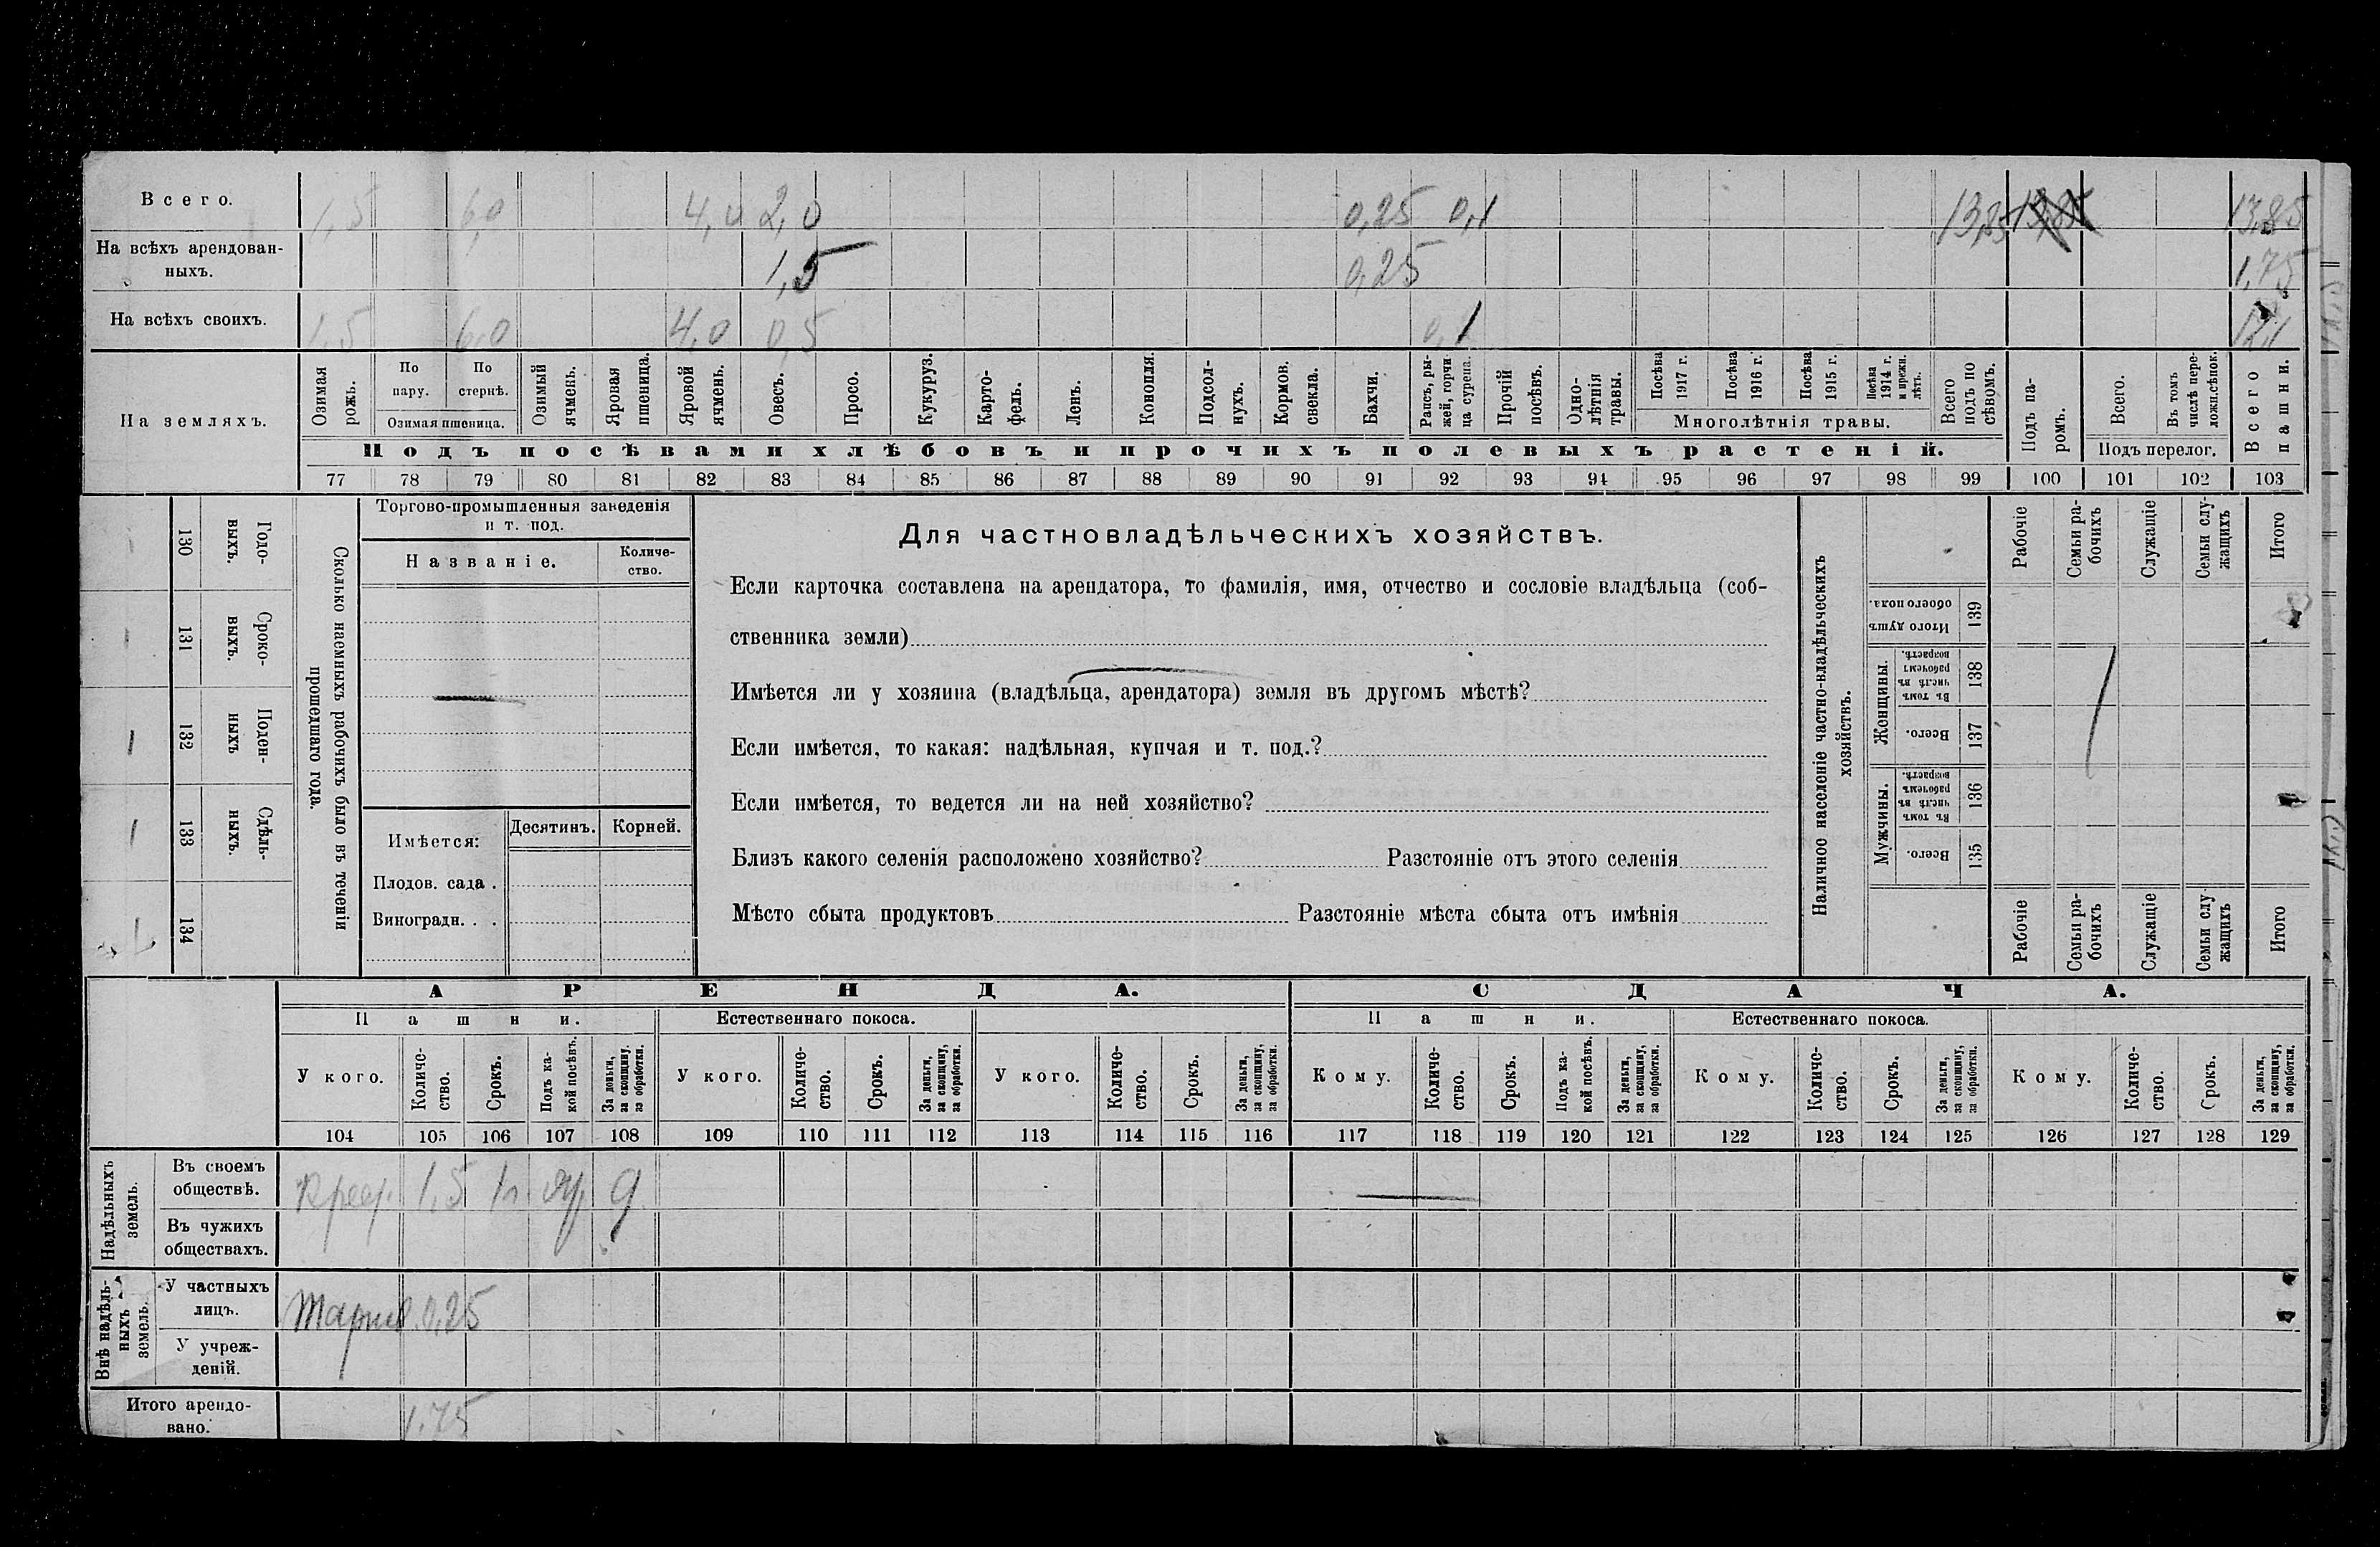 Всего. 1,5 6,0 4,0 2,0 0,25 0,1 13,85 13,85 13,85
На всѣхъ арендован-
ныхъ. 1,5 0,25 1,75
На всѣхъ своихъ. 1,5 6,0 4,0 0,5 0,1 12,1
На земляхъ.
Озимая рожь.
По пару.
По стернѣ.
Озимая пшеница.
Озимый ячмень.
Яровая пшеница.
Яровой ячмень.
Овесъ.
Просо.
Кукуруз.
Карто-
фель.
Ленъ.
Конопля.
Подсол-
нухъ.
Кормов. свекла.
Бахчи.
Рапсъ, ры-
жей, горчи
ца сурепа.
Прочій посѣвъ.
Одно-
лѣтнія травы.
Посѣва 1917 г.
Посѣва 1916 г.
Посѣва 1915 г.
Посѣва 1914 г. и прежн. лѣтъ.
Многолѣтнія травы.
Всего подъ по
сѣвомъ.
Подъ па-
ромъ.
Всего.
Въ томъ числѣ пере-
ложн.сѣнок.
Подъ перелог.
Всего пашни.
Подъ посѣвами хлѣбовъ и прочихъ полевыхъ растеній.
77 78 79 80 81 82 83 84 85 86 87 88 89 90 91 92 93 94 95 96 97 98 99 100 101 102 103
Сколько наемныхъ рабочихъ было въ теченіи
прошедшаго года.
Годо-
выхъ. 130
Сроко-
выхъ. 131
Поден-
ныхъ 132
Сдѣль-
ныхъ. 133
134
Торгово-промышленныя заведенія
и т. под.
Названіе.
Количе-
ство.
Имѣется:
Десятинъ. Корней.
Плодов. сада .
Виноградн. . .
Для частновладѣльческихъ хозяйствъ.
Если карточка составлена на арендатора, то фамилія, имя, отчество и сословіе владѣльца (соб-
ственника земли)
Имѣется ли у хозяина (владѣльца, арендатора) земля въ другомъ мѣстѣ?
Если имѣется, то какая: надѣльная, купчая и т. под.?
Если имѣется, то ведется ли на ней хозяйство?
Близъ какого селенія расположено хозяйство? Разстояніе отъ этого селенія
Мѣсто сбыта продуктовъ Разстояніе мѣста сбыта отъ имѣнія
Наличное населеніе частно-владѣльческихъ
хозяйствъ.
Рабочіе
Семьи ра-
бочихъ
Служащіе
Семьи слу-
жащихъ
Итого
Итого душъ
обоего пола. 139
Женщины.
Въ томъ числѣ въ рабочемъ возрастѣ. 138
Всего. 137
Мужчины.
Въ томъ числѣ въ рабочемъ возрастѣ. 136
Всего. 135
Рабочіе
Семьи ра-
бочихъ
Служащіе
Семьи слу
жащихъ
Итого
АРЕНДА. СДАЧА.
Пашни. Естественнаго покоса. Пашни. Естественнаго покоса.
У кого.
Количе-
ство.
Срокъ.
Подъ ка-
кой посѣвъ.
За деньги,
за скопщину,
за обработки.
У кого.
Количе-
ство.
Срокъ.
За деньги,
за скопщину,
за обработки.
У кого.
Количе-
ство.
Срокъ.
За деньги,
за скопщину,
за обработки.
Кому.
Количе-
ство.
Срокъ.
Подъ ка-
кой посѣвъ.
За деньги,
за скопщину,
за обработки.
Кому.
Количе-
ство.
Срокъ.
За деньги,
за скопщину,
за обработки.
Кому.
Количе-
ство.
Срокъ.
За деньги,
за скопщину,
за обработки.
104 105 106 107 108 109 110 111 112 113 114 115 116 117 118 119 120 121 122 123 124 125 126 127 128 129
Надѣльныхъ
земель.
Въ своемъ
обществѣ. 1,5
Въ чужихъ
обществахъ.
Внѣ надѣль-
ныхъ
земель.
У частныхъ
лицъ. 0,25
У учреж-
деній.
Итого арендо-
вано. 1.75